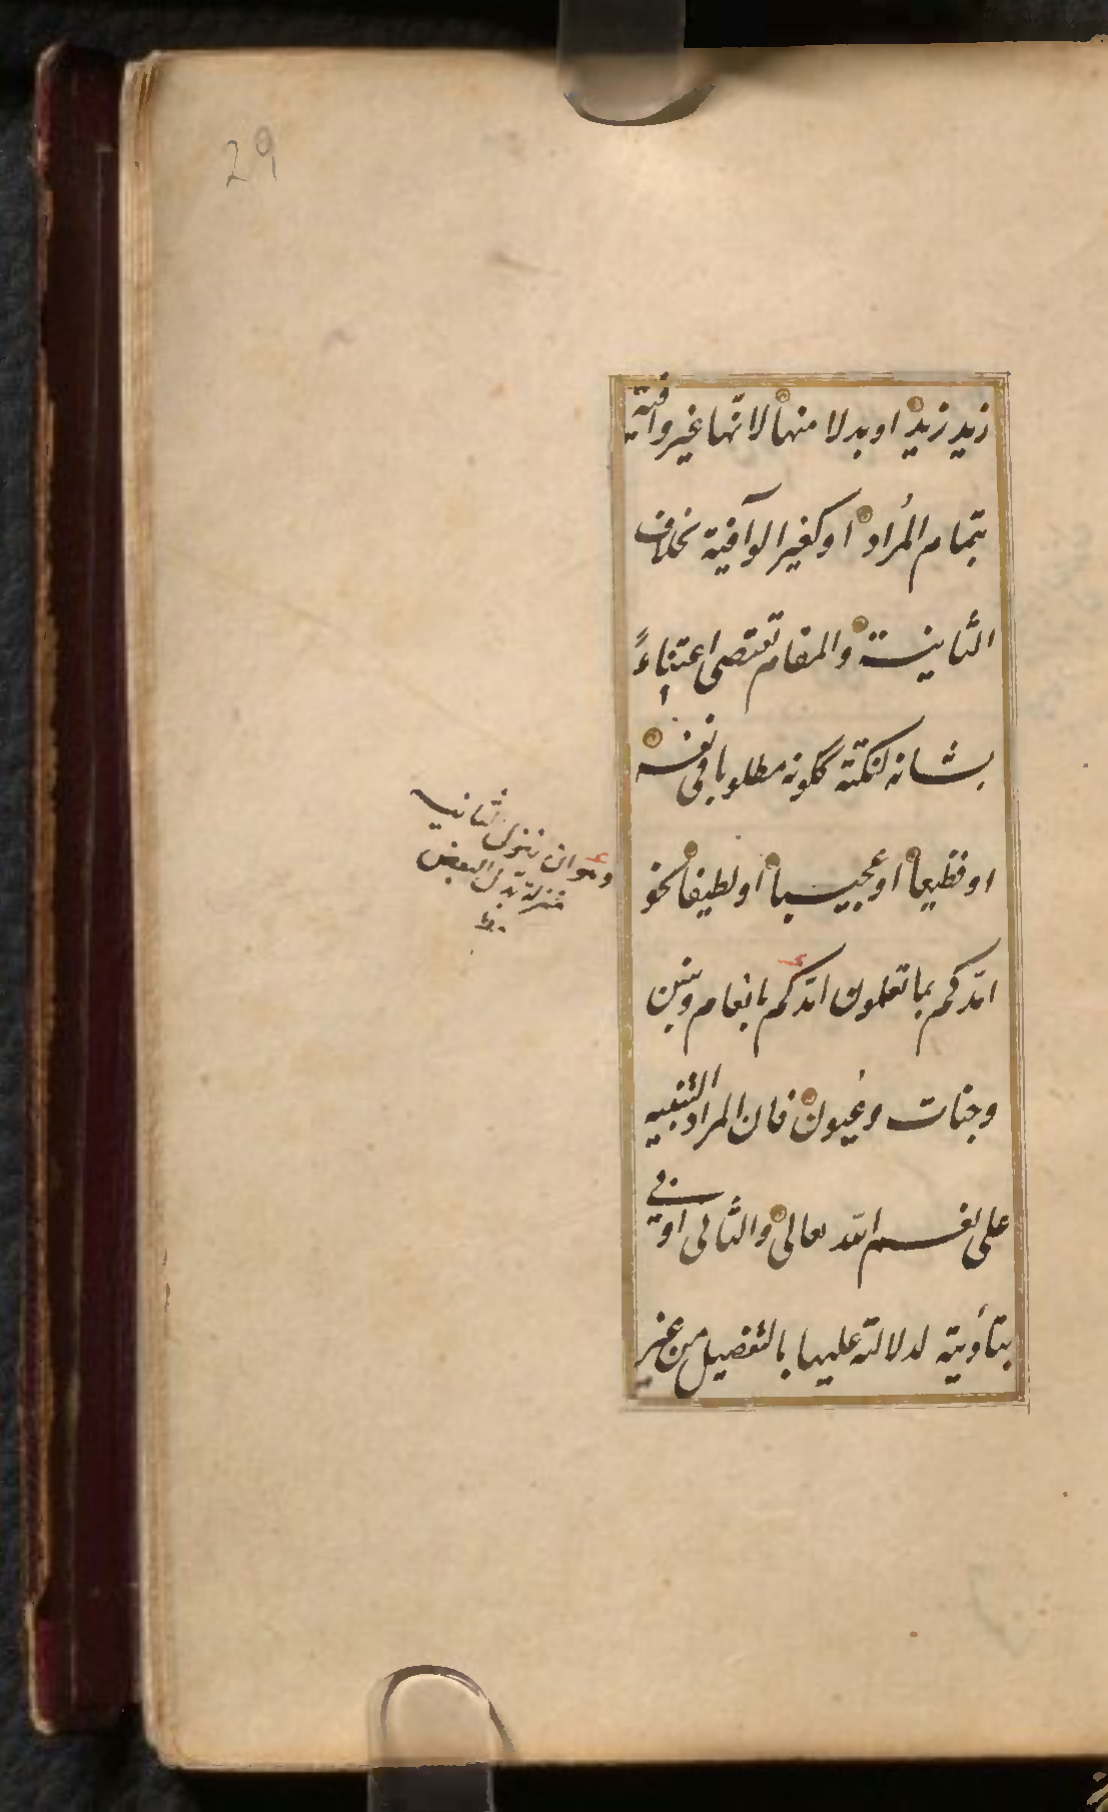 29
زيد زيد او بدلا منها لانّها غير وافية
بتمام المُراد او كغير الوآفية بخلاف
الثّانية والمقام تقتضى اعتناءً
بشانه لنكتة ككونه مطلوبا فى نفسه
او فظيعا او عجيبا او لطيفا نحو
امدّكم بما تعلمون امدّكم بانعام وبنين
وجنات وعُيون فان المراد التنبيه
على نعم الله تعالى والثّانى اوفى
بتأدية لدلالته عليها بالتفصيل من غير
وهو ان ينزل الثانية
منزلة بدل البعض